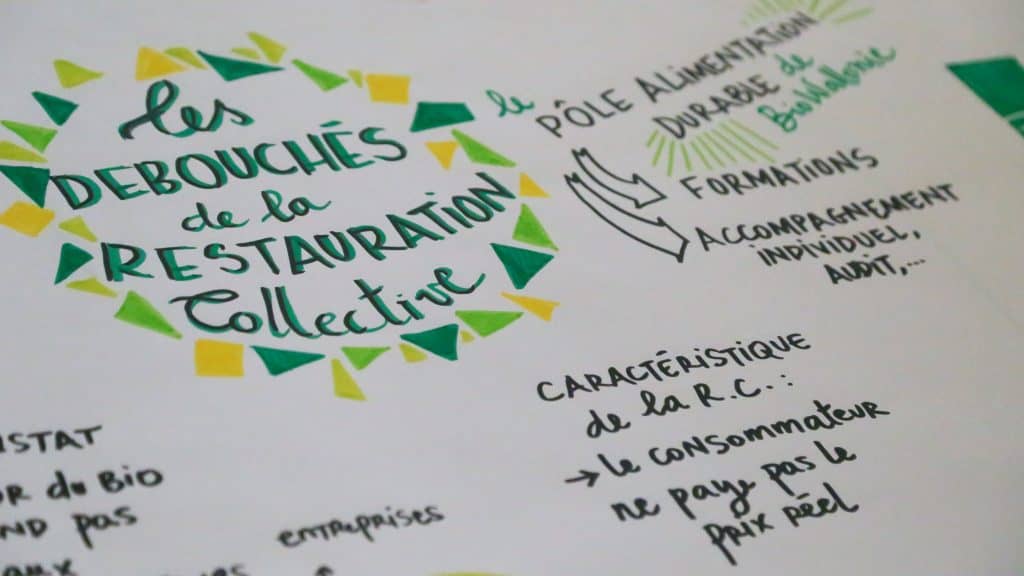 les
DEBOUCHÉS
de la
RESTAURATION
Collective
le PÔLE ALIMENTATION
DURABLE de
BioWallonie
FORMATIONS
ACCOMPAGNEMENT
INDIVIDUEL,
AUDIT,...
CARACTÉRISTIQUE
de la R.C.:
→ le CONSOMMATEUR
ne paye pas le
PRIX RÉEL
du BIO
pas
ENTREPRISES